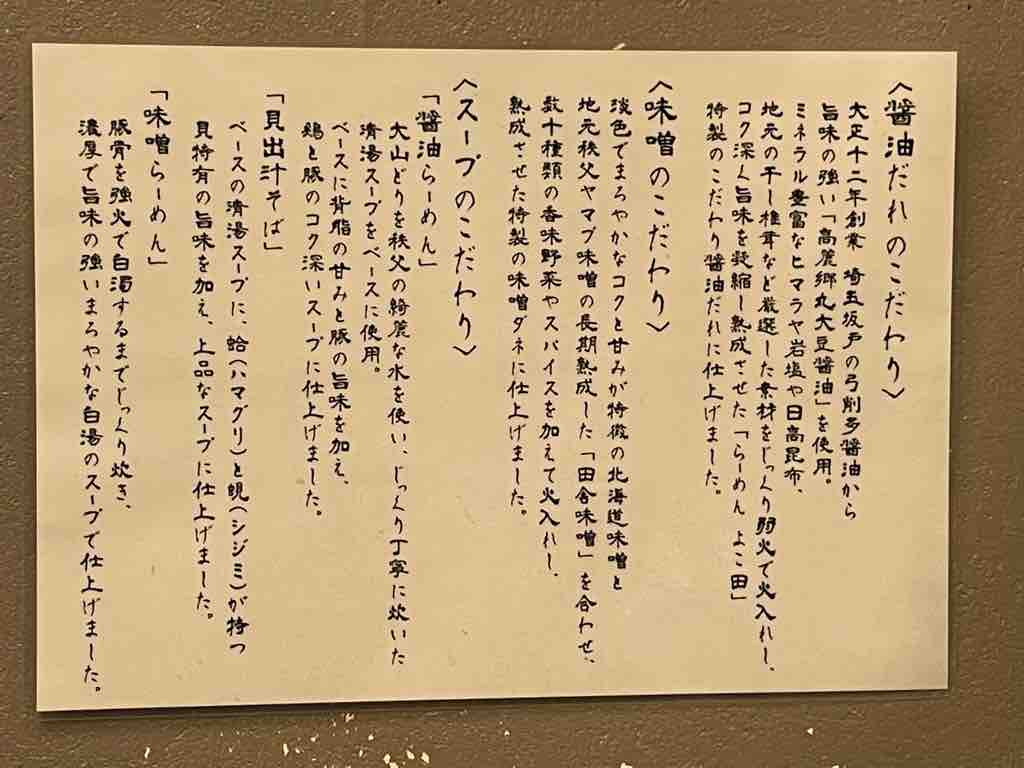 〈醤油だれのこだわり〉
大正十二年創業 埼玉坂戸の弓削多醤油から
旨味の強い「高麗郷丸大豆醤油」を使用。
ミネラル豊富なヒマラヤ岩塩や日高昆布、
地元の干し椎茸など厳選した素材をじっくり弱火で火入れし、
コク深く旨味を凝縮し熟成させた「らーめん よこ田」
特製のこだわり醤油だれに仕上げました。
〈味噌のこだわり〉
淡色でまろやかなコクと甘みが特徴の北海道味噌と
地元秩父ヤマブ味噌の長期熟成した「田舎味噌」を合わせ、
数十種類の香味野菜やスパイスを加えて火入れし、
熟成させた特製の味噌ダネに仕上げました。
〈スープのこだわり〉
「醤油らーめん」
大山どりを秩父の綺麗な水を使い、じっくり丁寧に炊いた
清湯スープをベースに使用。
ベースに背脂の甘みと豚の旨味を加え、
鶏と豚のコク深いスープに仕上げました。
「貝出汁そば」
ベースの清湯スープに、蛤(ハマグリ)と蜆(シジミ)が持つ
貝特有の旨味を加え、上品なスープに仕上げました。
「味噌らーめん」
豚骨を強火で白濁するまでじっくり炊き、
濃厚で旨味の強いまろやかな白湯のスープで仕上げました。